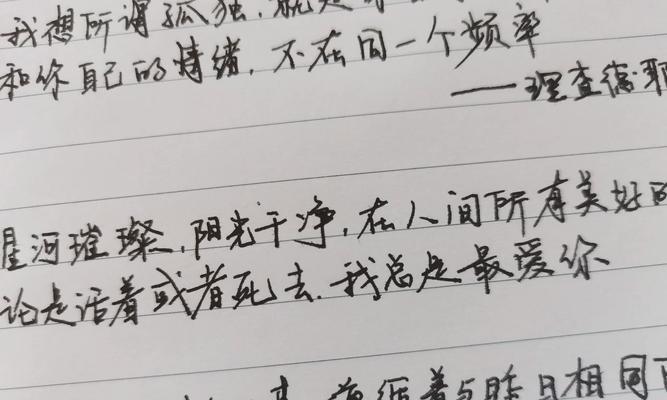 我想所谓孤独，就是
和你自己的情绪，不在同一个频率
——理查德·耶
星河璀璨，阳光干净，在人间所有美好的
论是活着或者死去，我总是最爱你
着与昨日相同